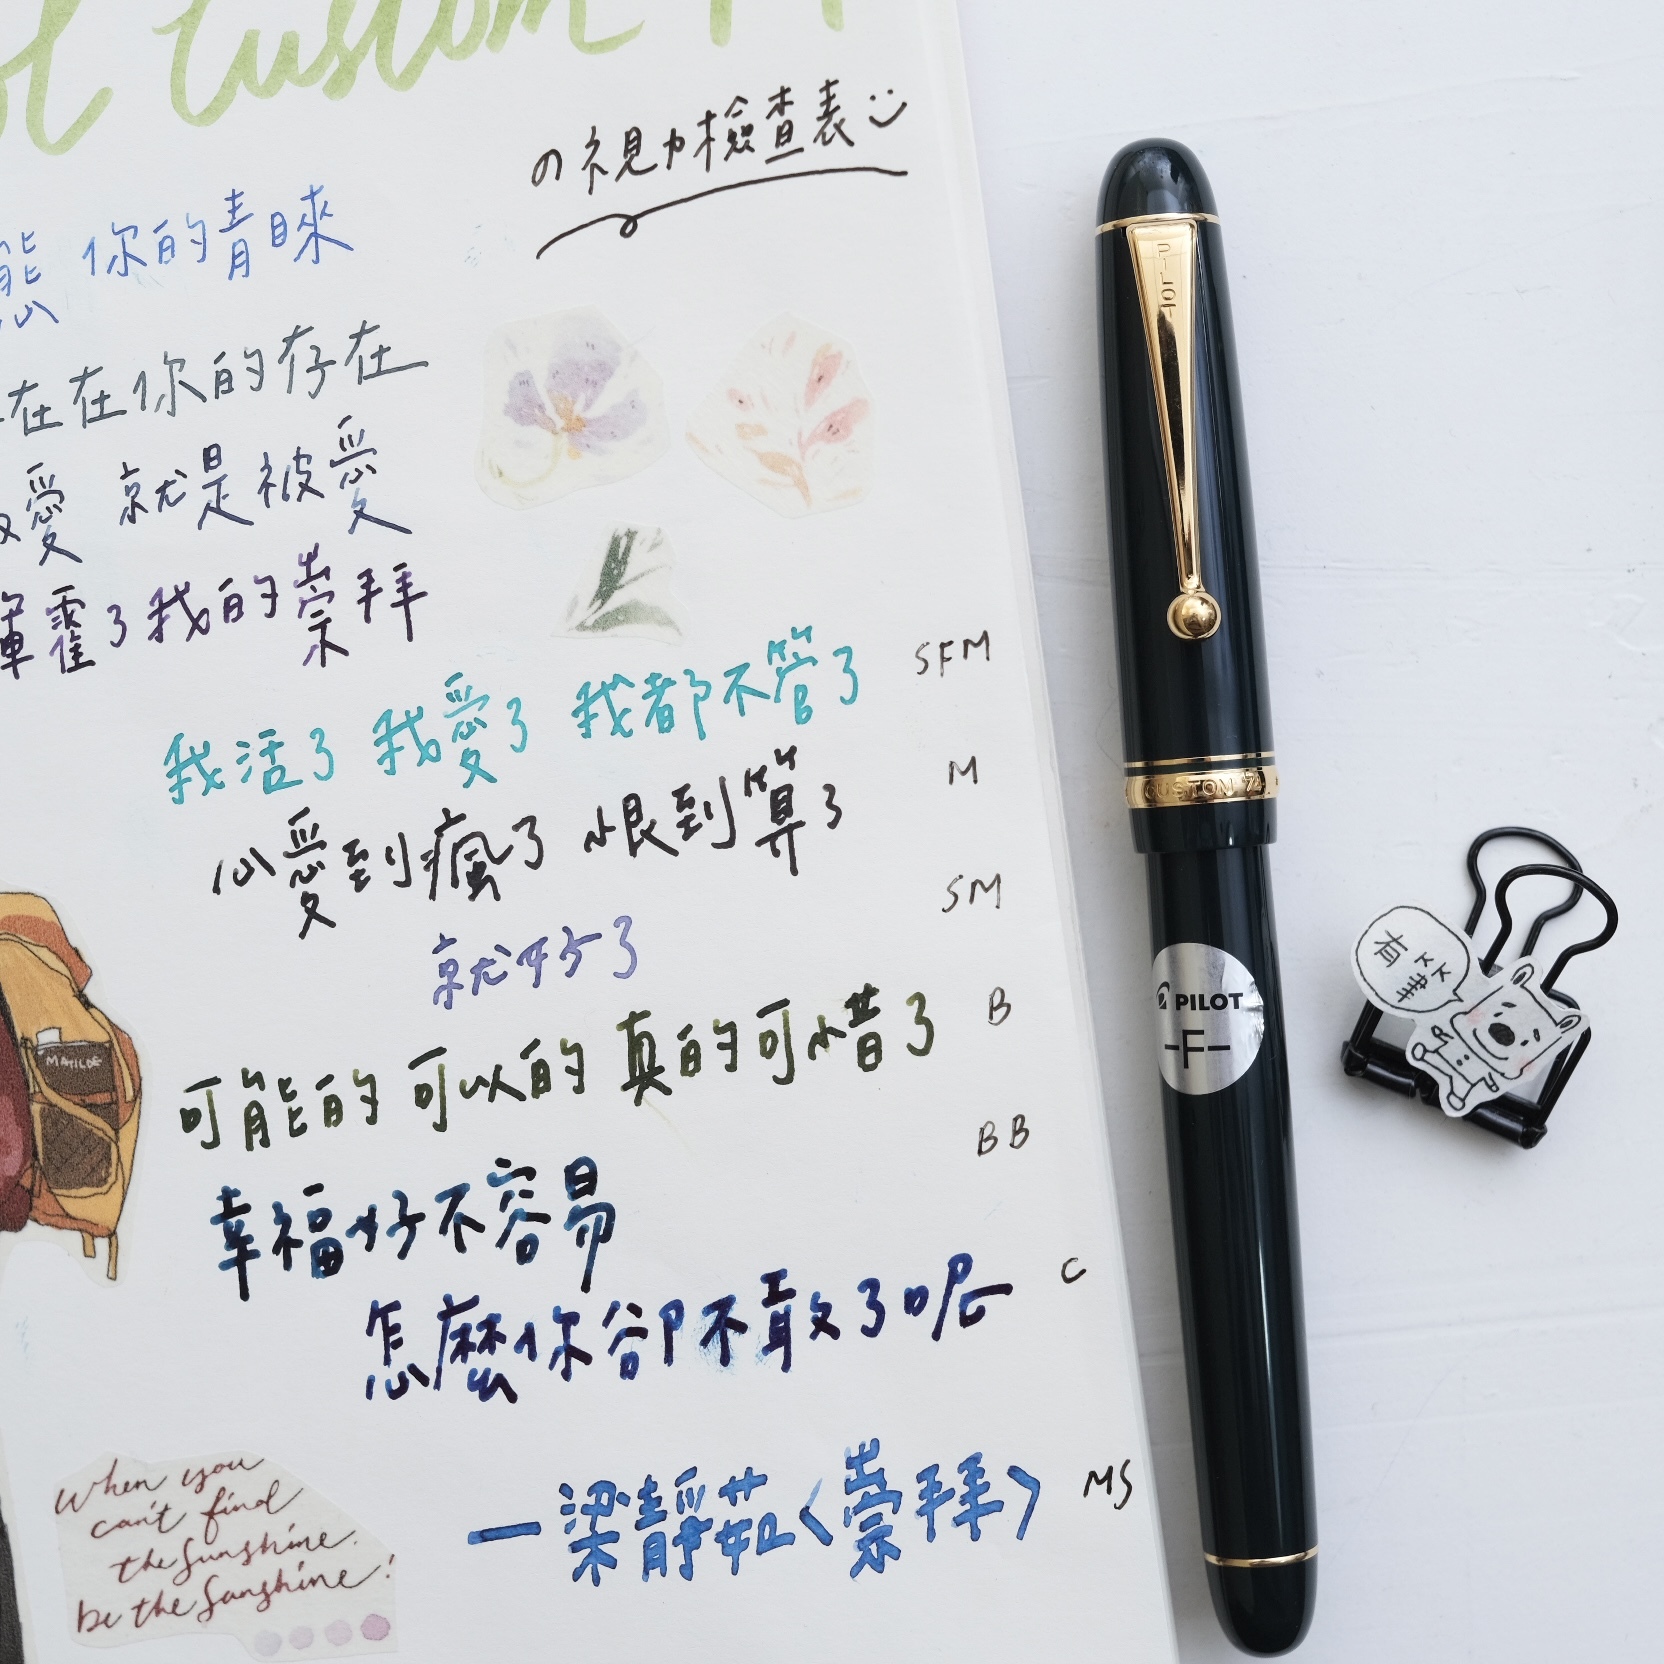 Custom
の視力檢查表
你的青睞
在在你的存在
愛 就是被愛
揮霍了我的崇拜
我活了 我愛了 我都不管了
SFM
心愛到瘋了 恨到算了
M
就好了
SM
可能的 可以的 真的可惜了
B
幸福好不容易
BB
怎麼你卻不敢了呢
C
—梁靜茹〈崇拜〉
MS
When you
can't find
the sunshine.
be the sunshine!
MATILDE
PILOT
CUSTOM 74
PILOT
-F-
有夢